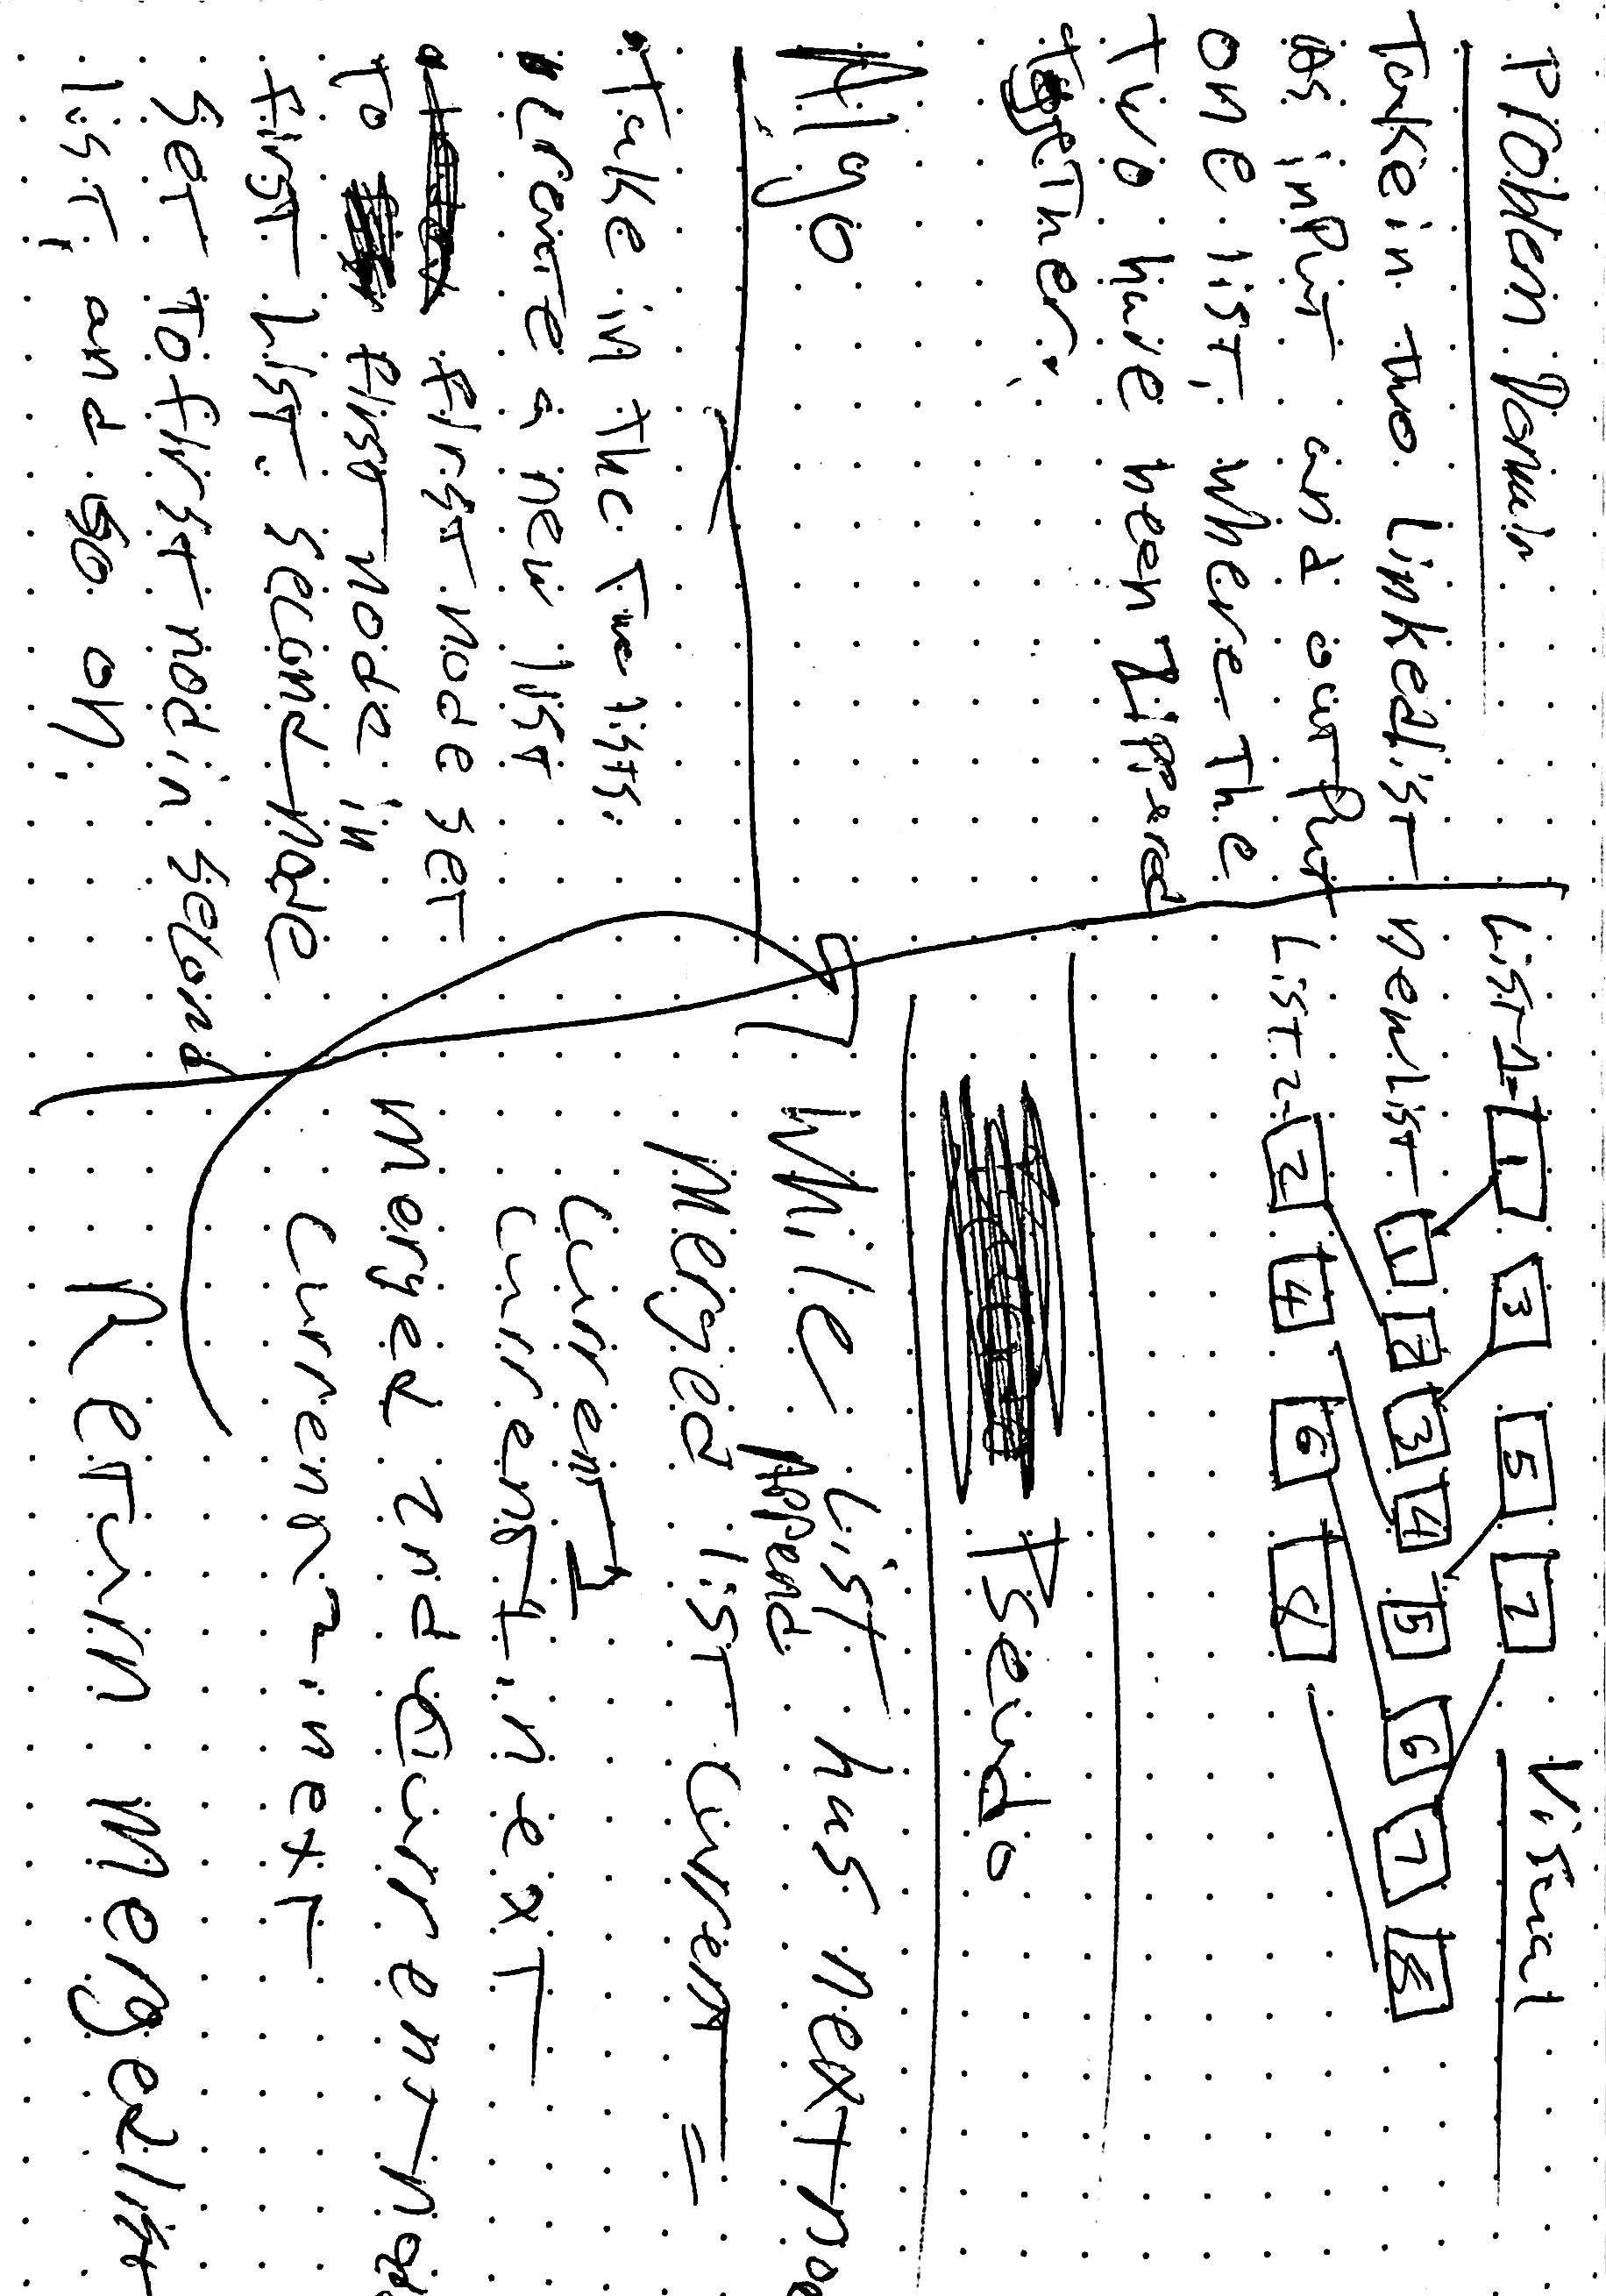 Problem Domain
Take in two Linked List
as input and output
one list, where the
two have been zipped
together.
Algo
Take in the Two lists.
Create a new list
first node set
To first node in
first List. Second Node
Set To first nod in Second
list, and so on.
Visual
List 1= 1 3 5 7
new List 1 2 3 4 5 6 7 8
List 2- 2 4 6 8
Pseudo
While List has next no
Append
Merged list current =
current 1
current 1 . next
Merged 2nd current node
current 2 . next
Return Merged list